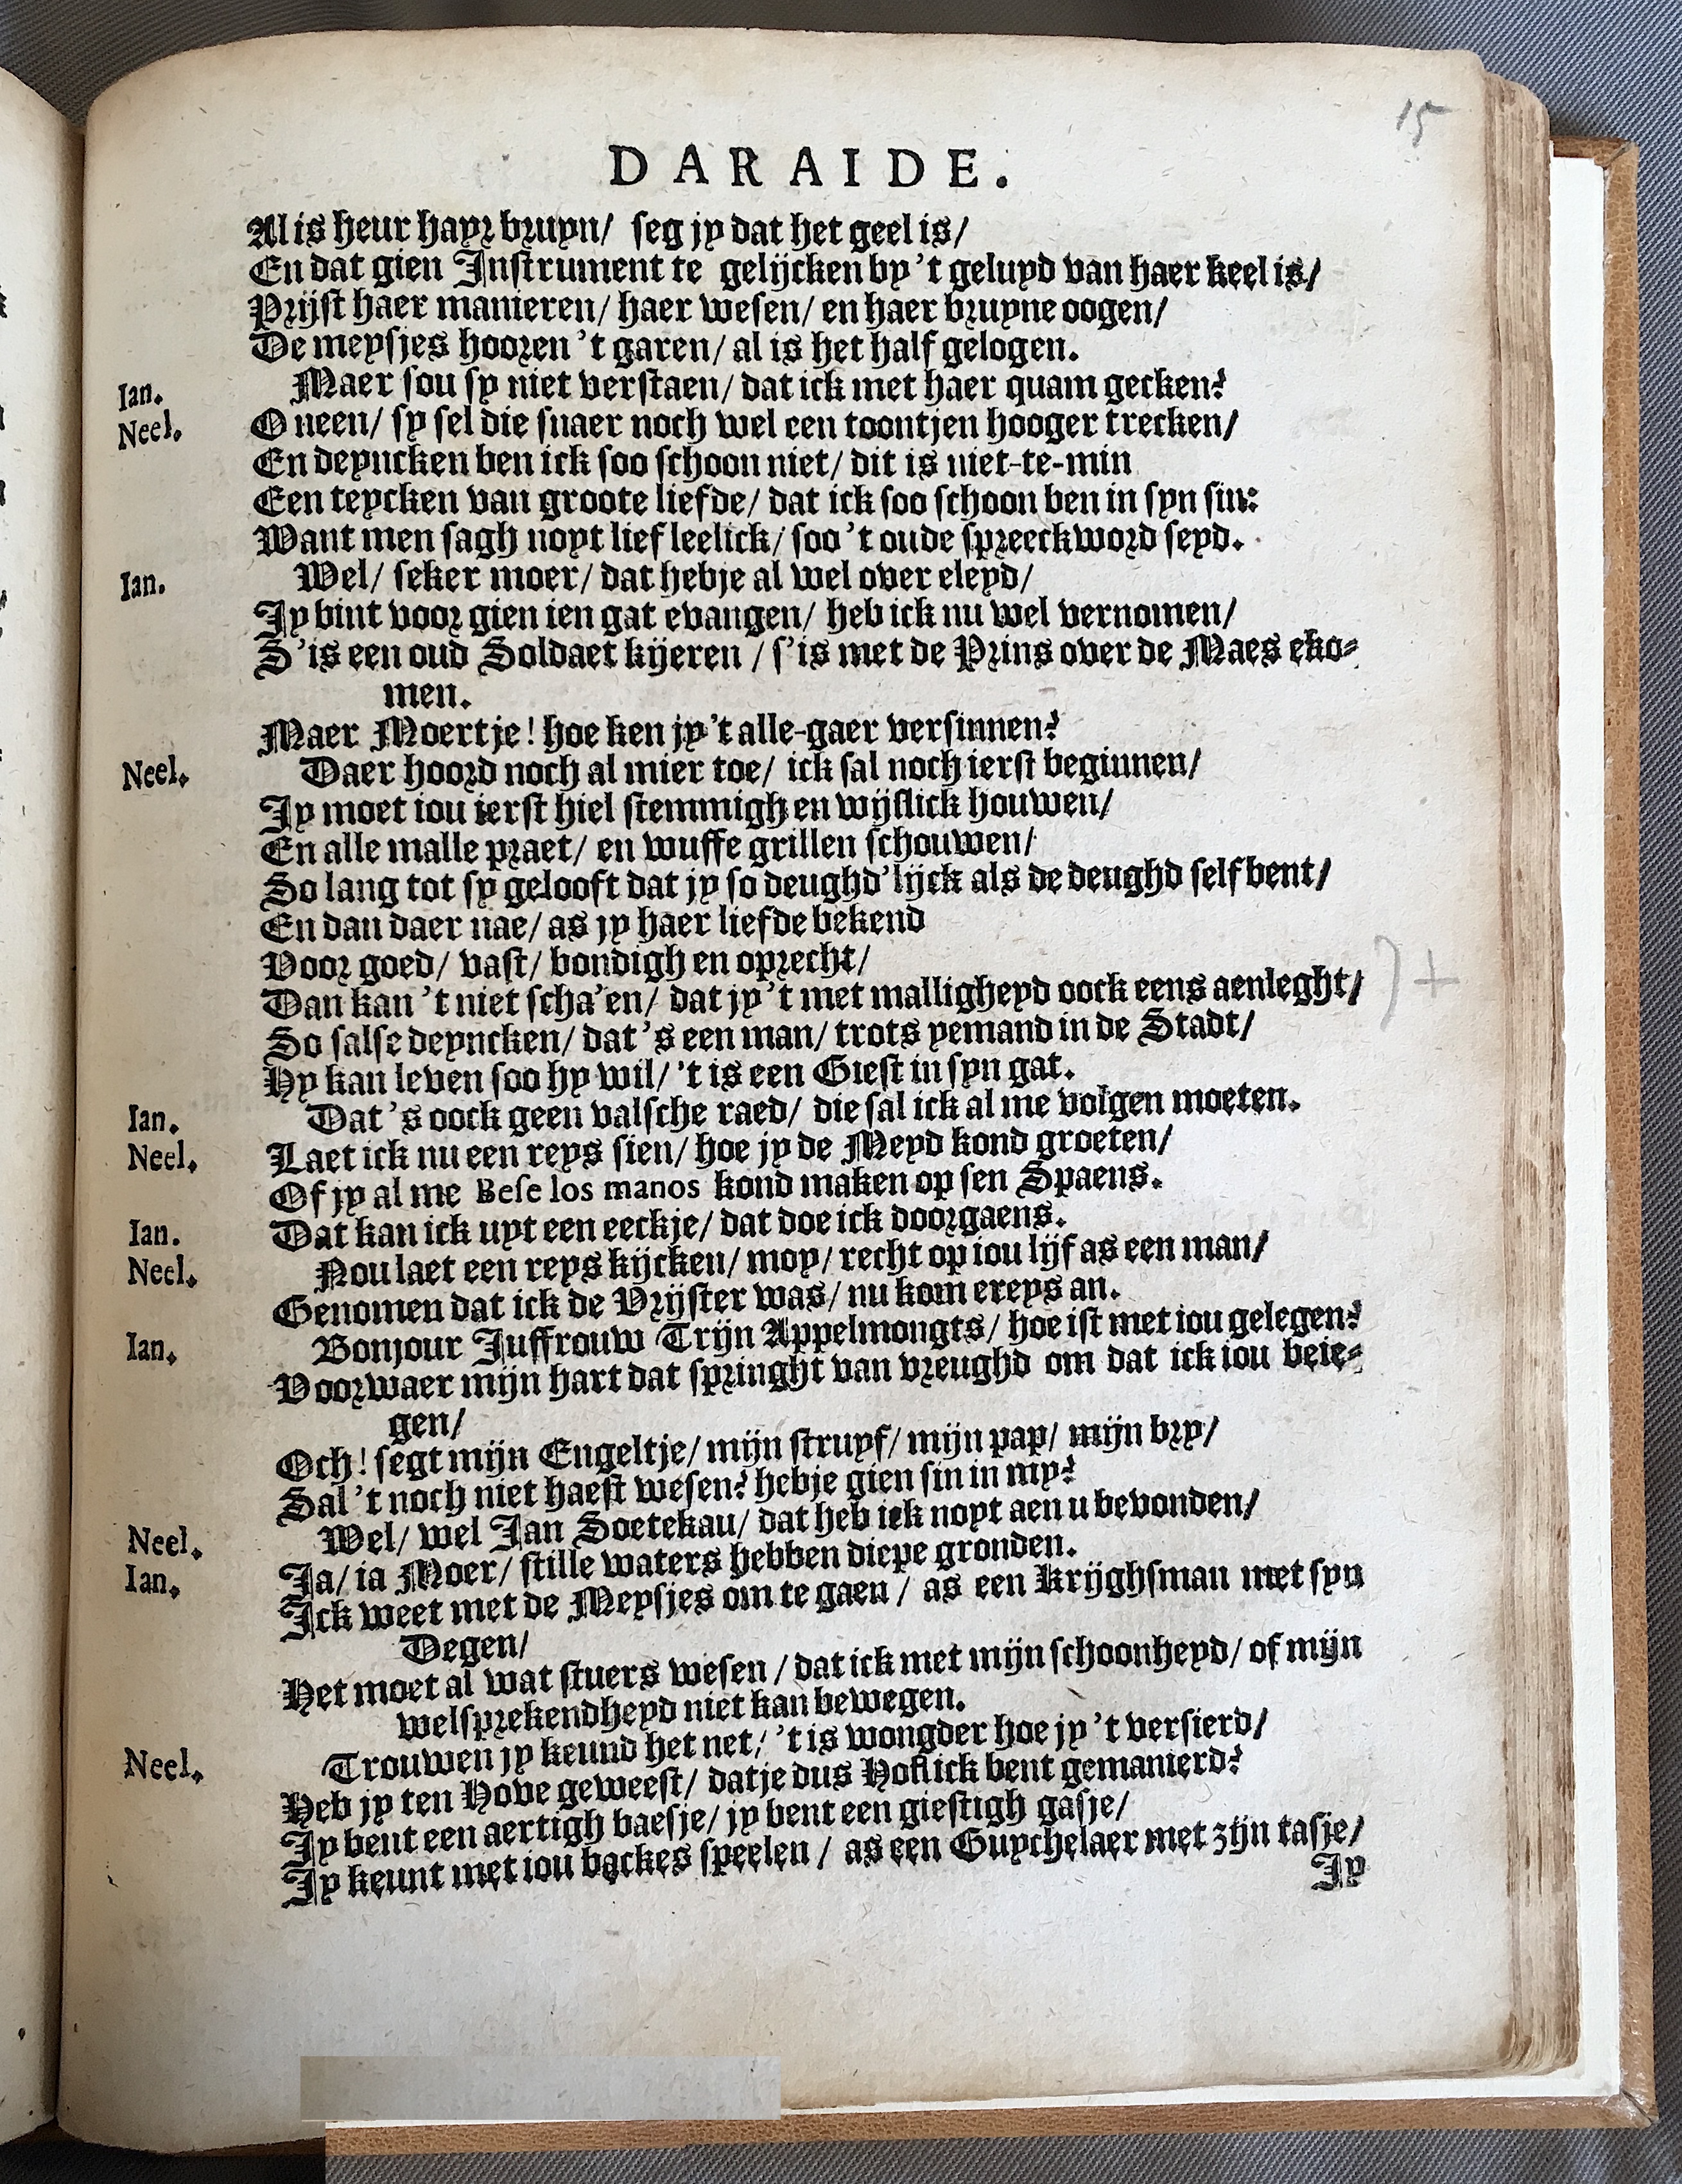 15
DARAIDE.
Al is heur hayr bruyn/ seg jy dat het geel is/
En dat gien Instrument te gelijcken by 't geluyd van haer keel is/
Prijst haer manieren/ haer wesen/ en haer bruyne oogen/
De meysjes hooren 't garen/ al is het half gelogen.
Ian. Maer sou sy niet verstaen/ dat ick met haer quam gecken?
Neel. O neen/ sy sel die snaer noch wel een toontjen hooger trecken/
En deyncken ben ick soo schoon niet/ dit is niet-te-min
Een teycken van groote liefde/ dat ick soo schoon ben in syn sin:
Want men sagh noyt lief leelick/ soo 't oude spreeckword seyd.
Ian. Wel/ seker moer/ dat hebje al wel over eleyd/
Jy bint voor gien ien gat evangen/ heb ick nu wel vernomen/
S'is een oud Soldaet kijeren / s'is met de Prins over de Maes eko-
men.
Maer Moertje! hoe ken jy 't alle-gaer versinnen?
Neel. Daer hoord noch al mier toe/ ick sal noch ierst beginnen/
Jy moet iou ierst hiel stemmigh en wijslick houwen/
En alle malle praet/ en wuffe grillen schouwen/
So lang tot sy gelooft dat jy so deughd'lijck als de deughd self bent/
En dan daer nae/ as jy haer liefde bekend
Voor goed/ vast/ bondigh en oprecht/
Dan kan 't niet scha'en/ dat jy 't met malligheyd oock eens aenleght/ ) +
So salse deyncken/ dat 's een man/ trots yemand in de Stadt/
Hy kan leven soo hy wil/ 't is een Giest in syn gat.
Ian. Dat 's oock geen valsche raed/ die sal ick al me volgen moeten.
Neel. Laet ick nu een reys sien/ hoe jy de Meyd kond groeten/
Of jy al me Bese los manos kond maken op sen Spaens.
Ian. Dat kan ick uyt een eeckje/ dat doe ick doorgaens.
Neel. Nou laet een reys kijcken/ moy/ recht op iou lijf as een man/
Genomen dat ick de Vrijster was/ nu kom ereys an.
Ian. Bonjour Juffrouw Trijn Appelmongts/ hoe ist met iou gelegen?
Voorwaer mijn hart dat springht van vreughd om dat ick iou beje-
gen/
Och! segt mijn Engeltje/ mijn struyf/ mijn pap/ mijn bry/
Sal 't noch niet haest wesen? hebje gien sin in my?
Neel. Wel/ wel Jan Soetekau/ dat heb ick noyt aen u bevonden/
Ian. Ja/ ia Moer/ stille waters hebben diepe gronden.
Ick weet met de Meysjes om te gaen / as een Krijghsman met syn
Degen/
Het moet al wat stuers wesen / dat ick met mijn schoonheyd/ of mijn
welsprekendheyd niet kan bewegen.
Neel. Trouwen jy keund het net/ 't is wongder hoe jy 't versierd/
Heb jy ten Hove geweest/ datje dus Hoflick bent gemanierd?
Jy bent een aertigh baesje/ jy bent een giestigh gasje/
Jy keunt met iou backes speelen / as een Guychelaer met zijn tasje/
Jy